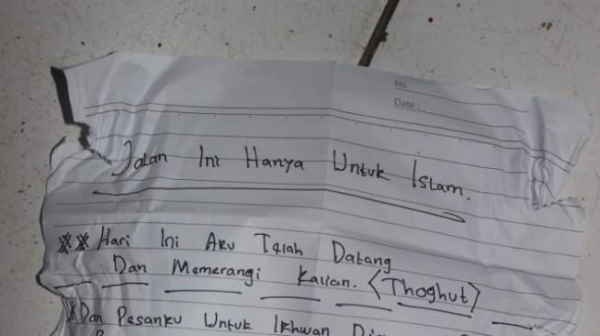 No.
Date:
Jalan Ini Hanya Untuk Islam.
** Hari Ini Aku Telah Datang
Dan Memerangi Kalian. <Thoghut>
*Dan Pesanku Untuk Ikhwan